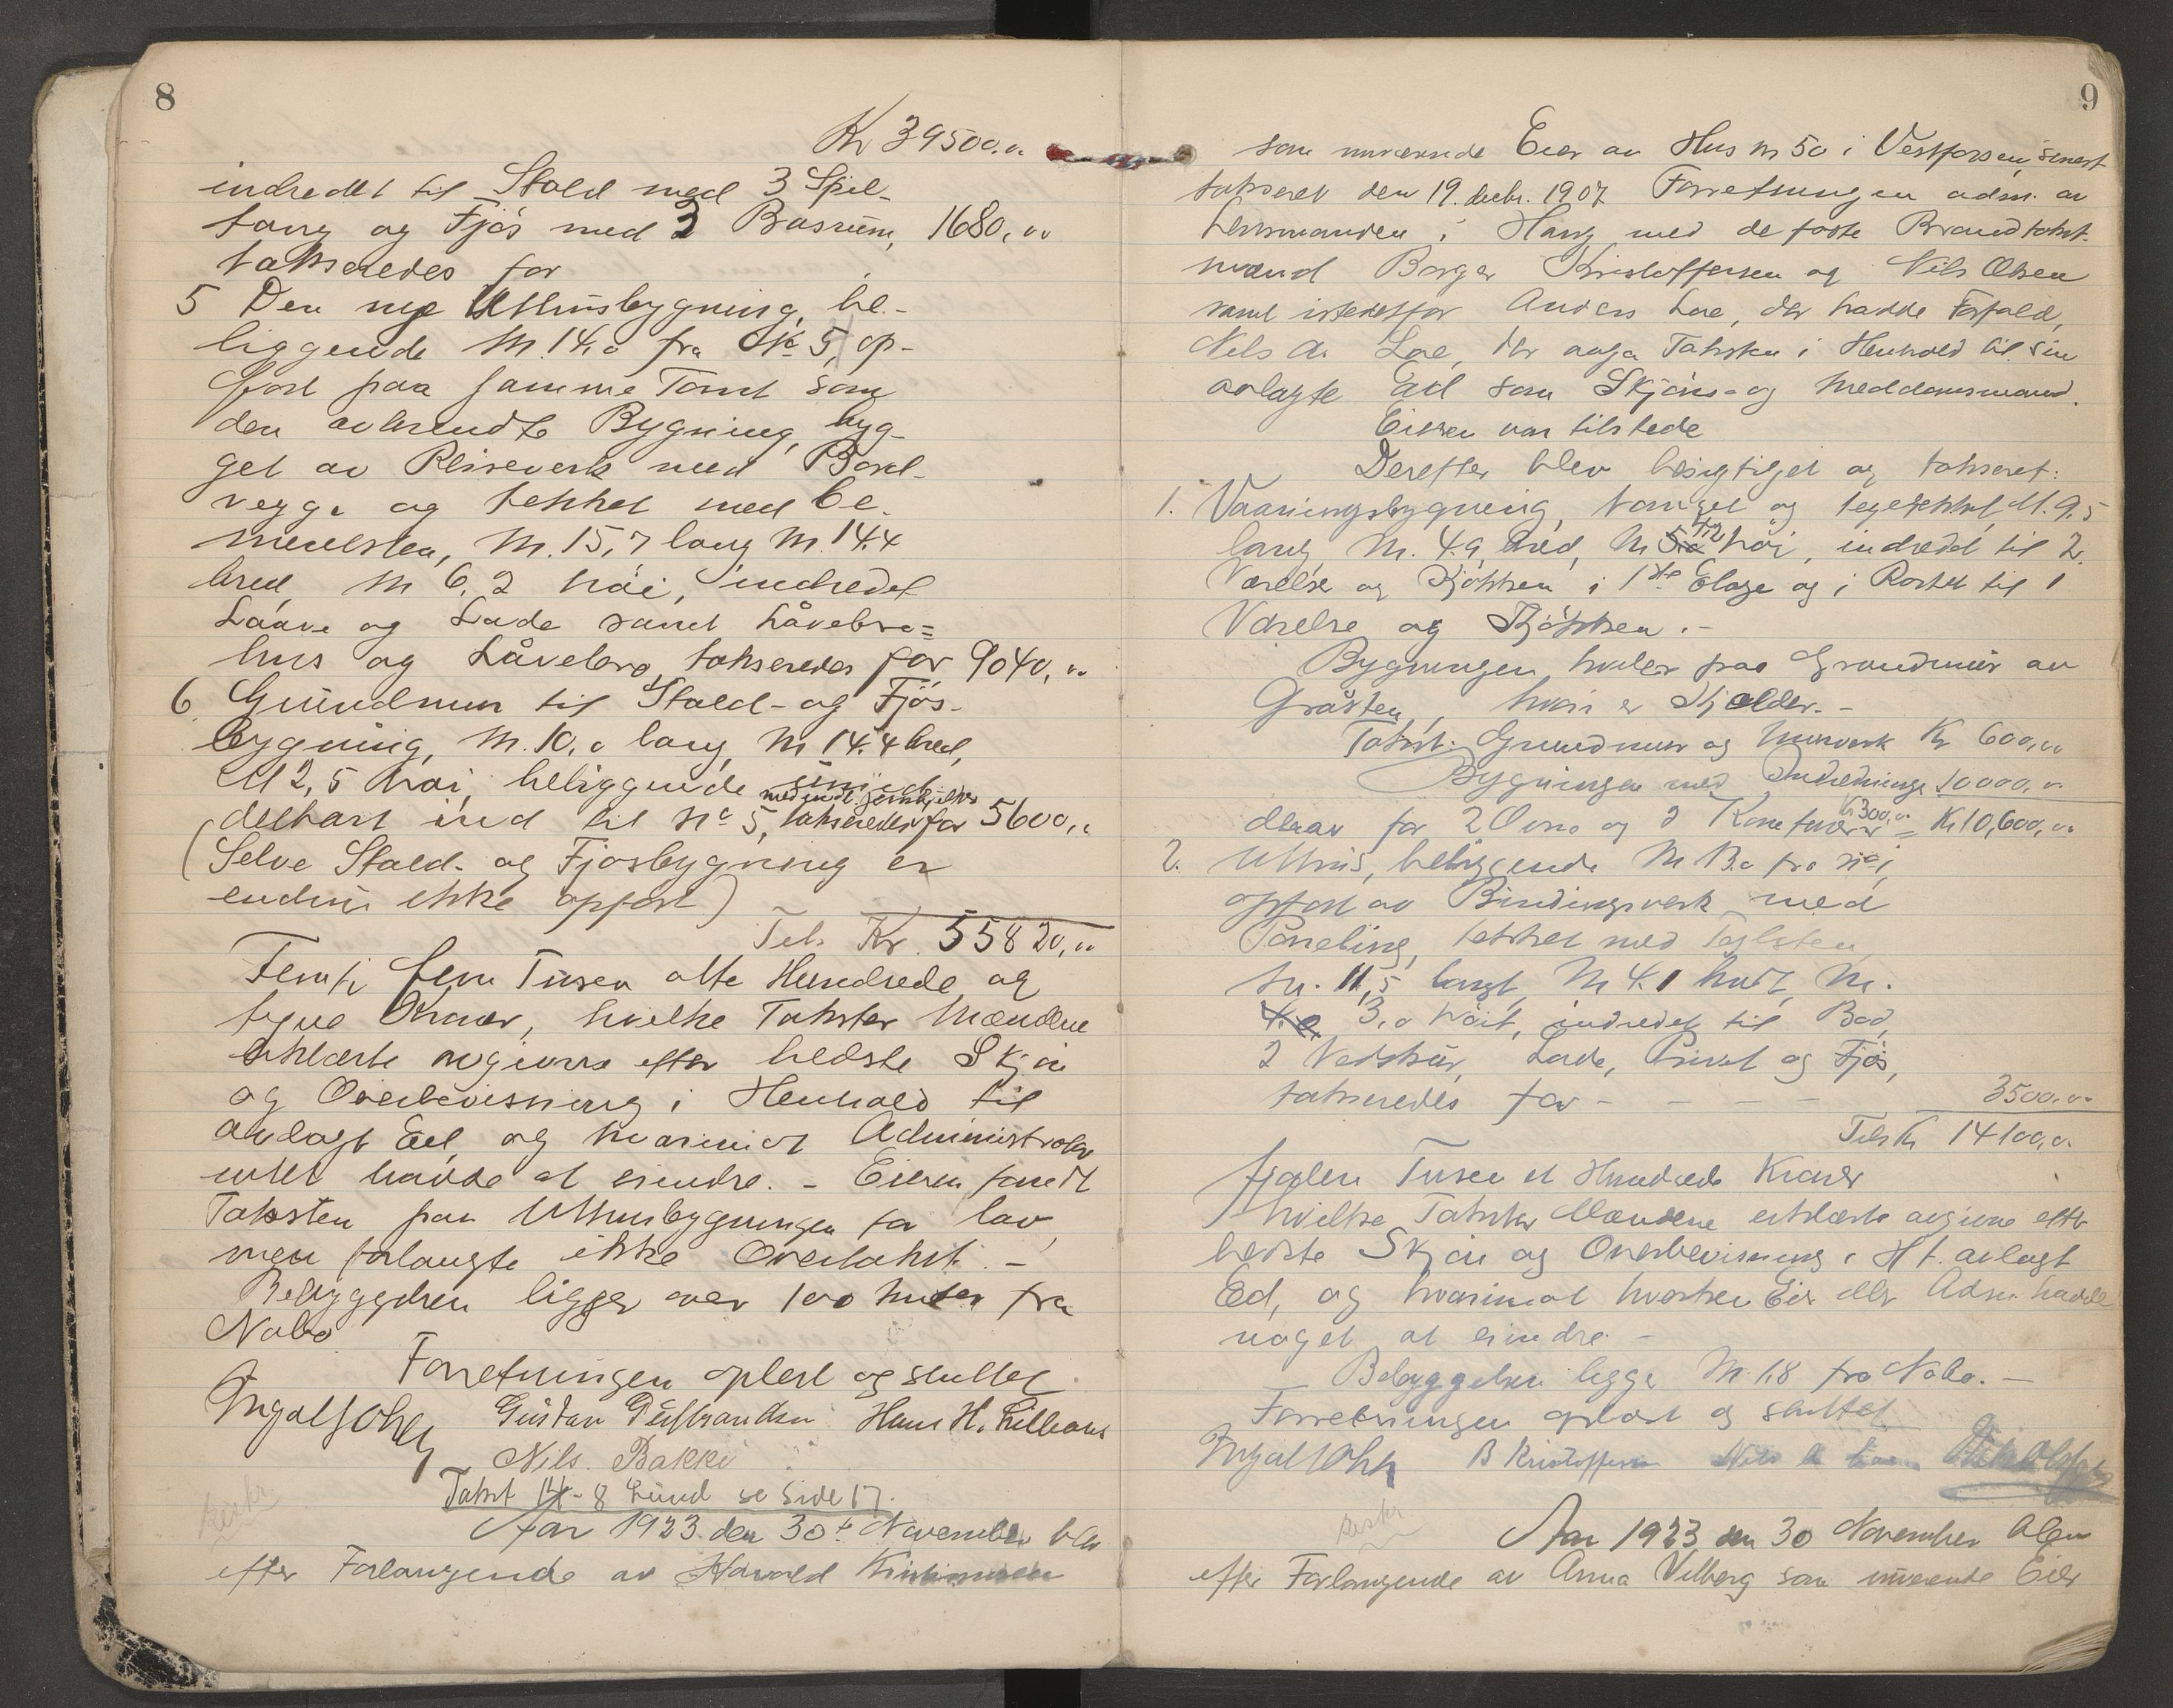 8
Kr 39500.00
indredet til Stald med 3 Spil-
taug og Fjøs med 3 Basrum, 1680,00
takseredes for
5 Den nye Uthusbygning, be-
liggende M. 14.0 fra No 5, op-
ført paa samme Tomt som
den avbrendte Bygning, byg-
get av Reisverk med Bord-
vegge og tekket med Ce-
mentsten, M. 15,7 lang M. 14.4
bred, M 6.2 høi, indredet
Laave og Lade samt Låvebro=
hus og Låvebro takseredes for 9040,00
6. Grundmur til Stald- og Fjøs-
bygning, M. 10,0 lang, M 14.4 bred,
M 2,5 høi, beliggende umid
delbart ind til No 5, takseredes for 5600,00
(Selve Stald- og Fjøsbygning er
endnu ikke opført)
Tils. Kr. 55820,00
Femti fem Tusen otte Hundrede og
tyve Kroner, hvilke Takster Mændene
erklærte avgivne efter bedste Skjøn
og Overbevisning i Henhold til
avlagt Ed, og hvorimot Administrator
intet havde at erindre. - Eieren fandt
Taksten paa Uthusbygningen for lav,
men forlangte ikke Overtakst. -
Bebyggelsen ligger over 100 Meter fra
Nabo
Forretningen oplest og sluttet
Ingolf Ohly Gustav Gulbrandsen Hans H. Lilleaas
Nils. Bakke
Takst 14 - 8 Lund se Side 17.
Aar 1923 den 30te November blev
efter Forlangende av Harald Kristiansen
9
som nuværende Eier av Hus nr 50 i Vestfossen, senest
takseret den 19. decbr. 1907 Forretningen adm. av
Lensmanden i Haug med de faste Brandtakst-
mænd Borger Kristoffersen og Nils Olsen
samt istedetfor Anders Loe, der hadde Forfald,
Nils A. Loe, der avga Taksten i Henhold til sin
avlagte Ed som Skjøns- og Meddomsmand.
Eieren var tilstede
Derefter blev besigtiget og takseret:
1. Vaaningsbygning, tømret og teglt tekket, M. 9.5
lang, M. 4.9 bred, M 5.0 4.2 høi, indredet til 2
Værelse og Kjøkken i 1ste Etage og i Røstet til 1
Værelse og Kjøkken. -
Bygningen hviler paa Grundmur av
Gråsten, hvori er Kjælder. -
Takst: Grundmur og Murverk Kr 600,00
Bygningen med Indredninge 10000,00
derav for 2 Ovne og 2 Komfurer Kr 300,00 = Kr 10,600,00
2. Uthus, beliggende M 13.0 fra No 1,
opført av Bindingsverk med
Paneling, tekket med Teglsten
M. 11,5 langt, M 4.1 bredt, M.
4.0 3.0 høit, indredet til Bod,
2 Vedskur, Lade, Privet og Fjøs,
takseredes for - - - - 3500.00
Tils Kr 14100,00
Fjorten Tusen et Hundrede Kroner
hvilke Takster Mændene erklærte avgivne efter
bedste Skjøn og Overbevisning i H. t. avlagt
Ed, og hvorimot hverken Eier eller Adm. havde
noget at erindre. -
Bebyggelsen ligger M. 18 fra Nabo. -
Forretningen oplæst og sluttet
Ingolf Ohly B Kristoffersen Nils A Loe Nils Olsen
Aar 1923 den 30 November blev
efter Forlangende av Anna Velberg som nuværende Eier